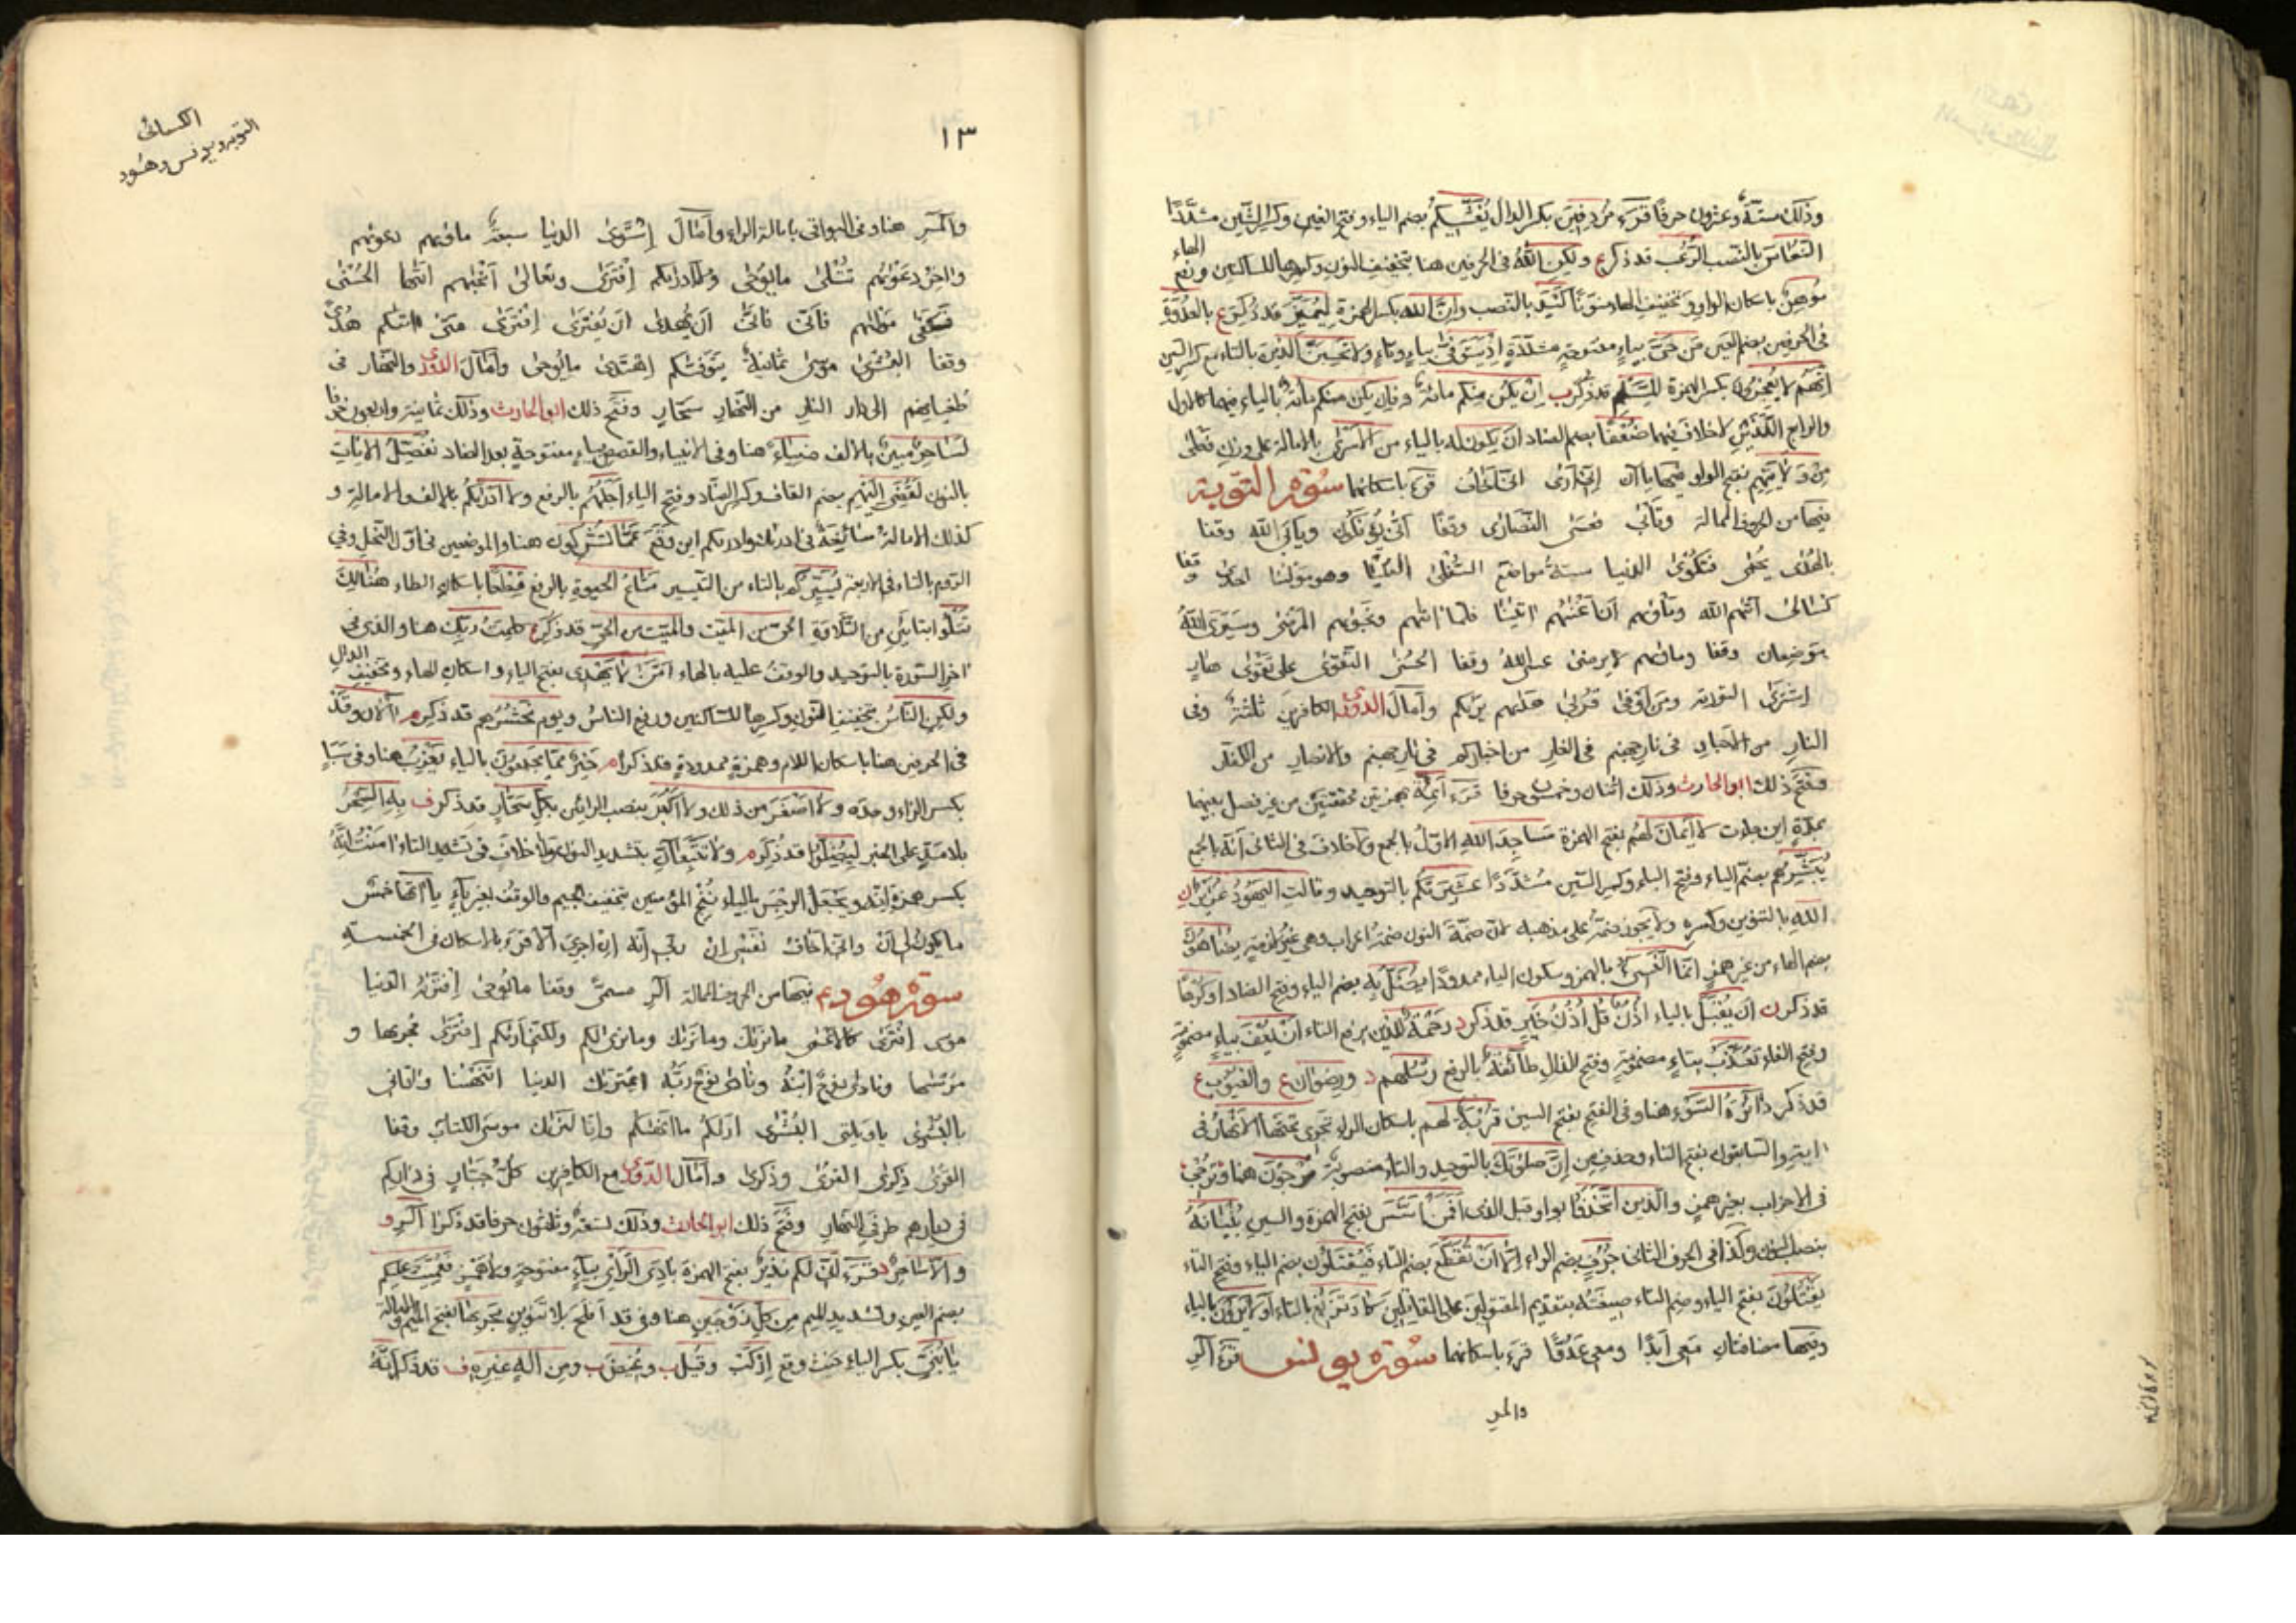 وذلك ستة وعشرون حرفًا قرء مُردِفِينَ بكسر الدال يُغَشِّيكُم بضم الياء وفتح الغين وكسر الشين مشدَّدًا
النُّعَاسَ بالنصب الرُّعُب قد ذكر ع ولكنِ اللهُ في الحرفين هنا بتخفيف النون وكسرها للساكنين ورفع الهاء
مُوهِنٌ باسكان الواو وتخفيف الهاء منوّنًا كَيْدَ بالنصب وإنّ الله بكسر الهمزة لِيُمَيِّزَ قد ذكر ع بالعُدْوَةِ
في الحرفين بضم العين مَن حَيَّ بياءٍ مفتوحة مشدّدة إذ يَتَوَفَّى بياء وتاء ولا تحسِبنّ الذين بالتاء مع كسر السين
انّهُم لا يُعجزون بكسر الهمزة للسَّلْمِ قد ذكر ب إن يكن منكم مائة وفإن يكن منكم مائة بالياء فيهما كالاول
والرابع الّلذين لا خلاف فيهما ضُعْفًا بضم الضاد أن يكون له بالياء من الأسرى بالامالة على وزن فَعْلى
مِن وَلَايَتِهِم بفتح الواو فيها ياآن إني أرى اني أخاف قرء باسكانهما سورة التوبة
فيها من الحروف الممالة وتأبى فعسى النصارى وقفًا أنّى يؤفكون ويأبى الله وقفا
بالهُدى يُحمى فتكوى الدنيا ستة مواضع السفلى العُليا وهو مولنا احدى وقفا
كسالى آتهم الله ومأوهم أن أغنهم آتينا فلما آتهم ونجوهم المرضى وسيرى اللهُ
موضعان وقفا ومأوهم لا يرضى عسى اللهُ وقفا الحُسنى التقوى على تقوى هارٍ
اشترى التورية ومن أوفى قُربى هديهم يريكم وأمال الدوري الكافرين ثلثة وفي
النارِ من الأحبارِ في نار جهنم في الغارِ من اخباركم في نار جهنم والانصارِ من الكفّار
وفتح ذلك ابو الحارث وذلك اثنان وخمسون حرفا قرء أئمّة بهمزتين محققتين من غير فصل بينهما
بمدّةٍ اين جاءت لا أيمانَ لهُم بفتح الهمزة مساجدَ الله الاول بالجمع ولا خلاف في الثاني أنه بالجمع
يُبَشِّرُهُم بضم الياء وفتح الباء وكسر الشين مُشدَّدًا عشيرتكم بالتوحيد وقالت اليهودُ عزيرٌ ابن
الله بالتنوين وكسره ولا يجوز ضمّهُ على مذهبه لانّ ضمّةَ النون ضمةُ اعراب وهي غير لازمة يُضاهُونَ
بضم الهاء من غير همزٍ انّما النّسيءُ بالهمز وسكون الياء ممدودًا يُضَلُّ به بضم الياء وفتح الضاد او كَرْهًا
قد ذكر ن أن يُقبَلَ بالياء أُذُنٌ قل أُذُنُ خيرٍ قد ذكر رحمةٌ للذين برفع التاء ان يُعْفَ بياءٍ مضمومة
وفتح الفاء تُعَذَّبْ بتاءٍ مضمومة وفتح الذال طآئفةٌ بالرفع رُسُلُهم د ورِضوان ع والغيوب ع
قد ذكر دآئرة السَّوْءِ هنا وفي الفتح بفتح السين قُرْبةٌ لهم باسكان الراء تجري تحتَها الانهارُ في
آية والسابقون بفتح التاء وحذف مِن إنّ صلوتَكَ بالتوحيد والتاء منصوبة مُرْجَوْنَ هنا وتُرجي
في الاحزاب بغير همزٍ والّذين اتّخذوا بواو قبل الذي أفمن أسَّسَ بفتح الهمزة والسين بُنيانَهُ
بنصب النون وكذا في الحرف الثاني جُرُفٍ بضم الراء إلّا أن تُقَطَّعَ بضم التاء فيُقْتَلُون بضم الياء وفتح التاء
يَقْتُلُونَ بفتح الياء وضم التاء صيغته بتقديم المفتولين على القاتلين كاد تزيغ بالتاء أوَلا يَرَونَ بالياء
وفيها مضافتان معي أبدًا ومعي عَدُوًّا قرء باسكانهما سورة يونس قرء الر
والمر
١٣
الكسائى
التوبه ويونس وهود
والمر هنا وفي البواقي بامالة الراء وأمال استوى الدنيا سبعة ماوهم دعوهم
وآخر دعوهم تتلى ما يوحى ولا أدريكم افترى وتعالى أنجهم أتها الحُسنى
فكفى موليهم فأنّى فأنّى أن يهدى أن يُفترى افترى متى أتيكم هُدىً
وقفا البشرى موسى ثمانية يتوفكم اهتدى ما يُوحى وأمال الدوري والنهار في
طغيانهم الى دار النار من النهار سحّار وفتح ذلك ابو الحارث وذلك ثمانية واربعون حرفا
لسَاحِرٌ مبينٌ بالألف ضياءً هنا وفي الانبياء والقصص بياء مفتوحة بعد الضاد نفصّل الآيات
بالنون لقُضِيَ إليهم بضم القاف وكسر الضاد وفتح الياء أجلُهُم بالرفع ولا أدريكم بالالف والامالة و
كذلك الامالة سائغة في ادريك وادريكم اين وقع عمّا تُشركون هنا والموضعين في أوّل النحل وفي
الروم بالتاء في الاربعة يُسَيِّركم بالتاء من التيسير متاعُ الحيوة بالرفع قِطْعًا باسكان الطاء هُنالِك
تَتْلُوا بتاءين من التلاوة الحيّ من الميّت والميّت من الحيّ قد ذكر ع كلمتُ ربّك هنا والذي في
آخر السورة بالتوحيد والوقف عليه بالهاء أمّن لا يَهْدِي بفتح الياء واسكان الهاء وتخفيف الدال
ولكنِ الناسُ بتخفيف النون وكسرها للساكنين ورفع الناسُ ويوم نحشُرُهم قد ذكر م آلآن وقد
في الحرفين هنا باسكان اللام وهمزة ممدودة قد ذكر ام خيرٌ ممّا يجمعون بالياء يَعزِب هنا وفي سبا
بكسر الزاء وحده ولا أصغرَ من ذلك ولا أكبرَ بنصب الرائين بكل سحّارٍ قد ذكر ف بِهِ السِّحرُ
بلا مدّ على الخبر لِيُضِلّوا قد ذكر م ولا تتّبعآنّ بتشديد النون ولا خلاف في تشديد التاء آمنتُ إنّهُ
بكسر همزة إنّه ويجعلُ الرجسَ بالياء نُنْجِ المؤمنين بتخفيف الجيم والوقف بغير ياءٍ يا آتها خمسٌ
ما يكون لي أنْ وإني أخافُ نفسي إنْ ربّي إنّه إن أجريَ إلّا قرء بالاسكان في الخمسة
سورة هود ع فيها من الحروف الممالة الر مسمىً وقفا ما يُوحى افتريه الدنيا
موسى افترى كالاعمى ما نريك وما نريك وما نرى لكم ولكني أريكم افترى مجريها و
مُرسها ونادى نوحٌ ابنهُ ونادى نوحٌ ربّه اعتريك الدنيا أتنهنا وآتاني
بالبُشرى ياويلتى البُشرى أريكم ما أنهيكم وإنّا لنريك موسى الكتاب وقفا
القرى ذكرى القرى وذكرى وأمال الدوري مع الكافرين كلّ جبّارٍ في داركم
في ديارهم طرفي النهار وفتح ذلك ابو الحارث وذلك تسعة وثلثون حرفا قد ذكر الر و
والّا ساحرٌ د قرء أنّي لكم نذيرٌ بفتح الهمزة بادِيَ الرأي بياءٍ مفتوحة ولا همز فعُمِّيَت عليكم
بضم العين وتشديد الميم مِن كلّ زوجين هنا وفي قد أفلح بلا تنوين مَجريها بفتح الميم والامالة
يابُنيِّ بكسر الياء حيث وقع اركب وقيل ب وغيض ب ومِن الهٍ غيرِهِ ف قد ذكر إنّهُ